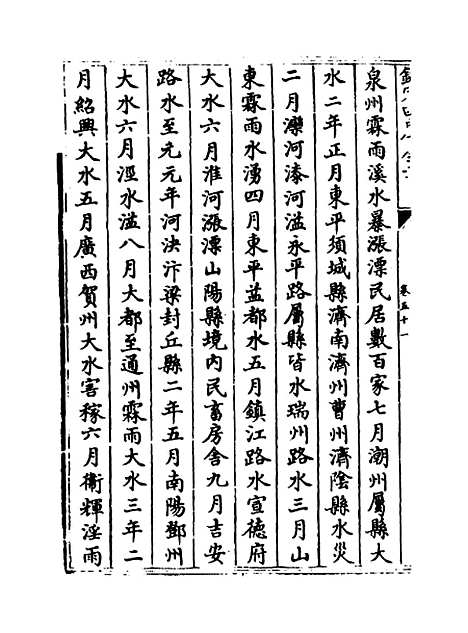 卷五十一
泉州霖雨溪水暴漲漂民居數百家七月潮州屬縣大
水二年正月東平須城縣濟南濟州曹州濟陰縣水災
二月灤河漆河溢永平路屬縣皆水瑞州路水三月山
東霖雨水湧四月東平益都水五月鎮江路水宣德府
大水六月淮河漲漂山陽縣境内民畜房舍九月吉安
路水至元元年河決汴梁封丘縣二年五月南陽鄧州
大水六月涇水溢八月大都至通州霖雨大水三年二
月紹興大水五月廣西賀州大水害稼六月衞輝淫雨